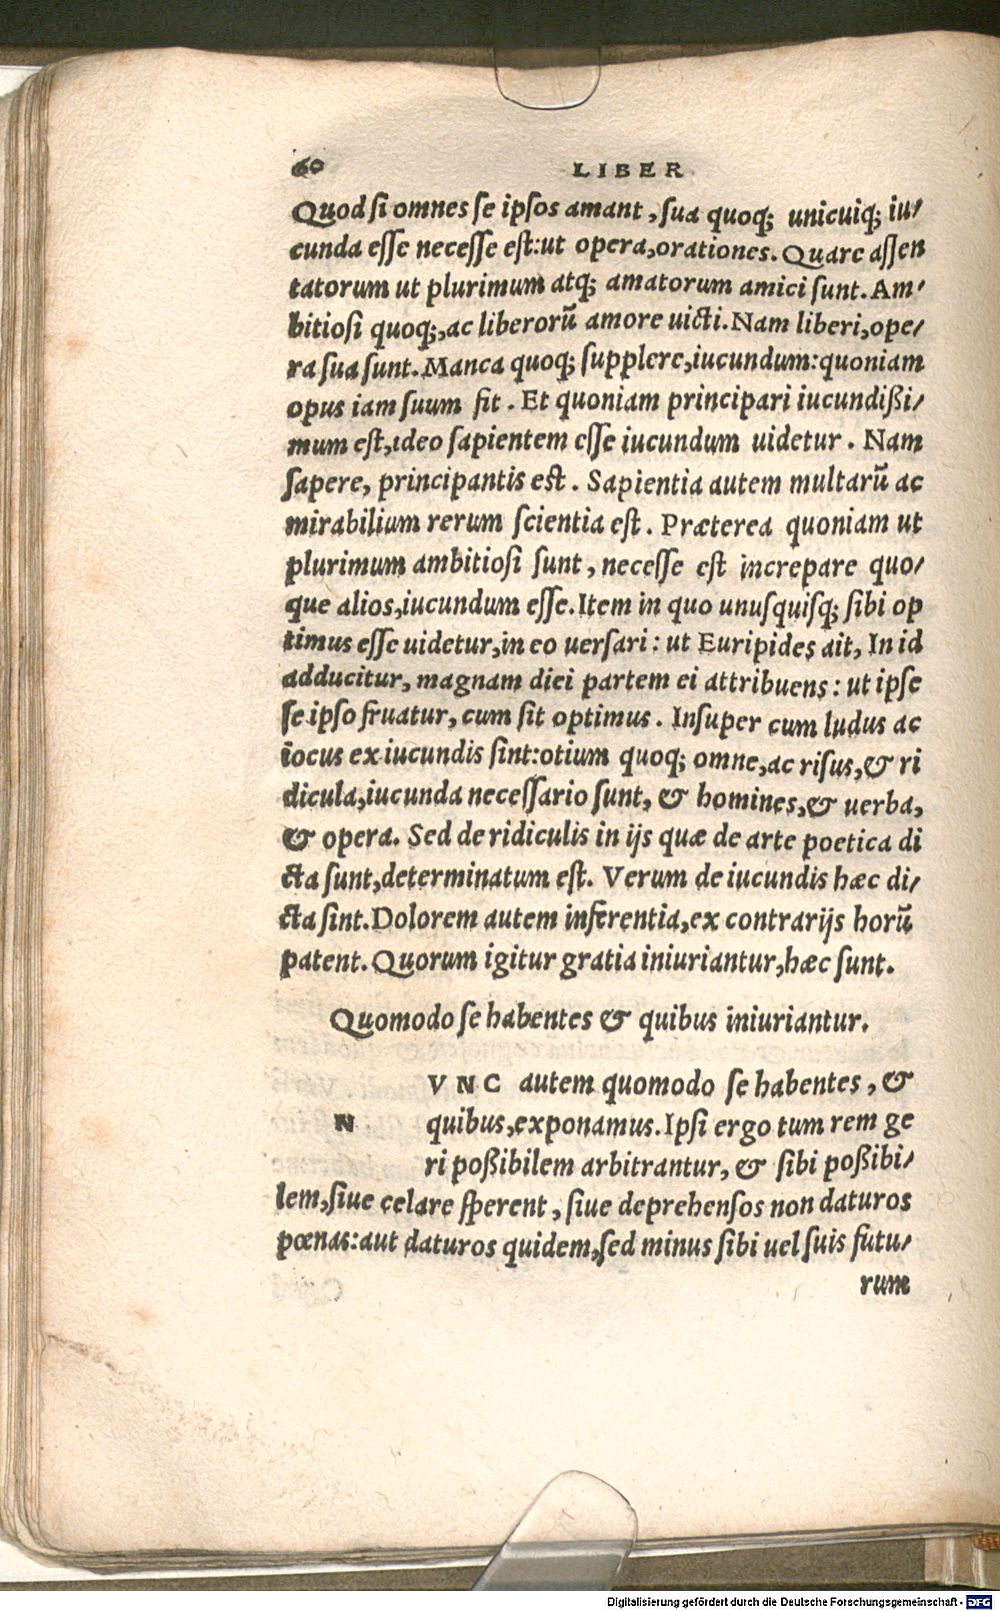 60 LIBER
Quod si omnes se ipsos amant, sua quoq; unicuiq; iu/
cunda esse necesse est: ut opera, orationes. Quare assen
tatorum ut plurimum atq; amatorum amici sunt. Am/
bitiosi quoq;, ac liberorũ amore uicti. Nam liberi, ope/
ra sua sunt. Manca quoq; supplere, iucundum: quoniam
opus iam suum fit. Et quoniam principari iucundißi/
mum est, ideo sapientem esse iucundum uidetur. Nam
sapere, principantis est. Sapientia autem multarũ ac
mirabilium rerum scientia est. Præterea quoniam ut
plurimum ambitiosi sunt, necesse est increpare quo/
que alios, iucundum esse. Item in quo unusquisq; sibi op
timus esse uidetur, in eo uersari: ut Euripides ait, In id
adducitur, magnam diei partem ei attribuens: ut ipse
se ipso fruatur, cum sit optimus. Insuper cum ludus ac
iocus ex iucundis sint: otium quoq; omne, ac risus, & ri
dicula, iucunda necessario sunt, & homines, & uerba,
& opera. Sed de ridiculis in ijs quæ de arte poetica di
cta sunt, determinatum est. Verum de iucundis hæc di/
cta sint. Dolorem autem inferentia, ex contrarijs horũ
patent. Quorum igitur gratia iniuriantur, hæc sunt.
Quomodo se habentes & quibus iniuriantur.
N VNC autem quomodo se habentes, &
quibus, exponamus. Ipsi ergo tum rem ge
ri poßibilem arbitrantur, & sibi poßibi/
lem, siue celare sperent, siue deprehensos non daturos
pœnas: aut daturos quidem, sed minus sibi uel suis futu/
rum
Digitalisierung gefördert durch die Deutsche Forschungsgemeinschaft - DFG